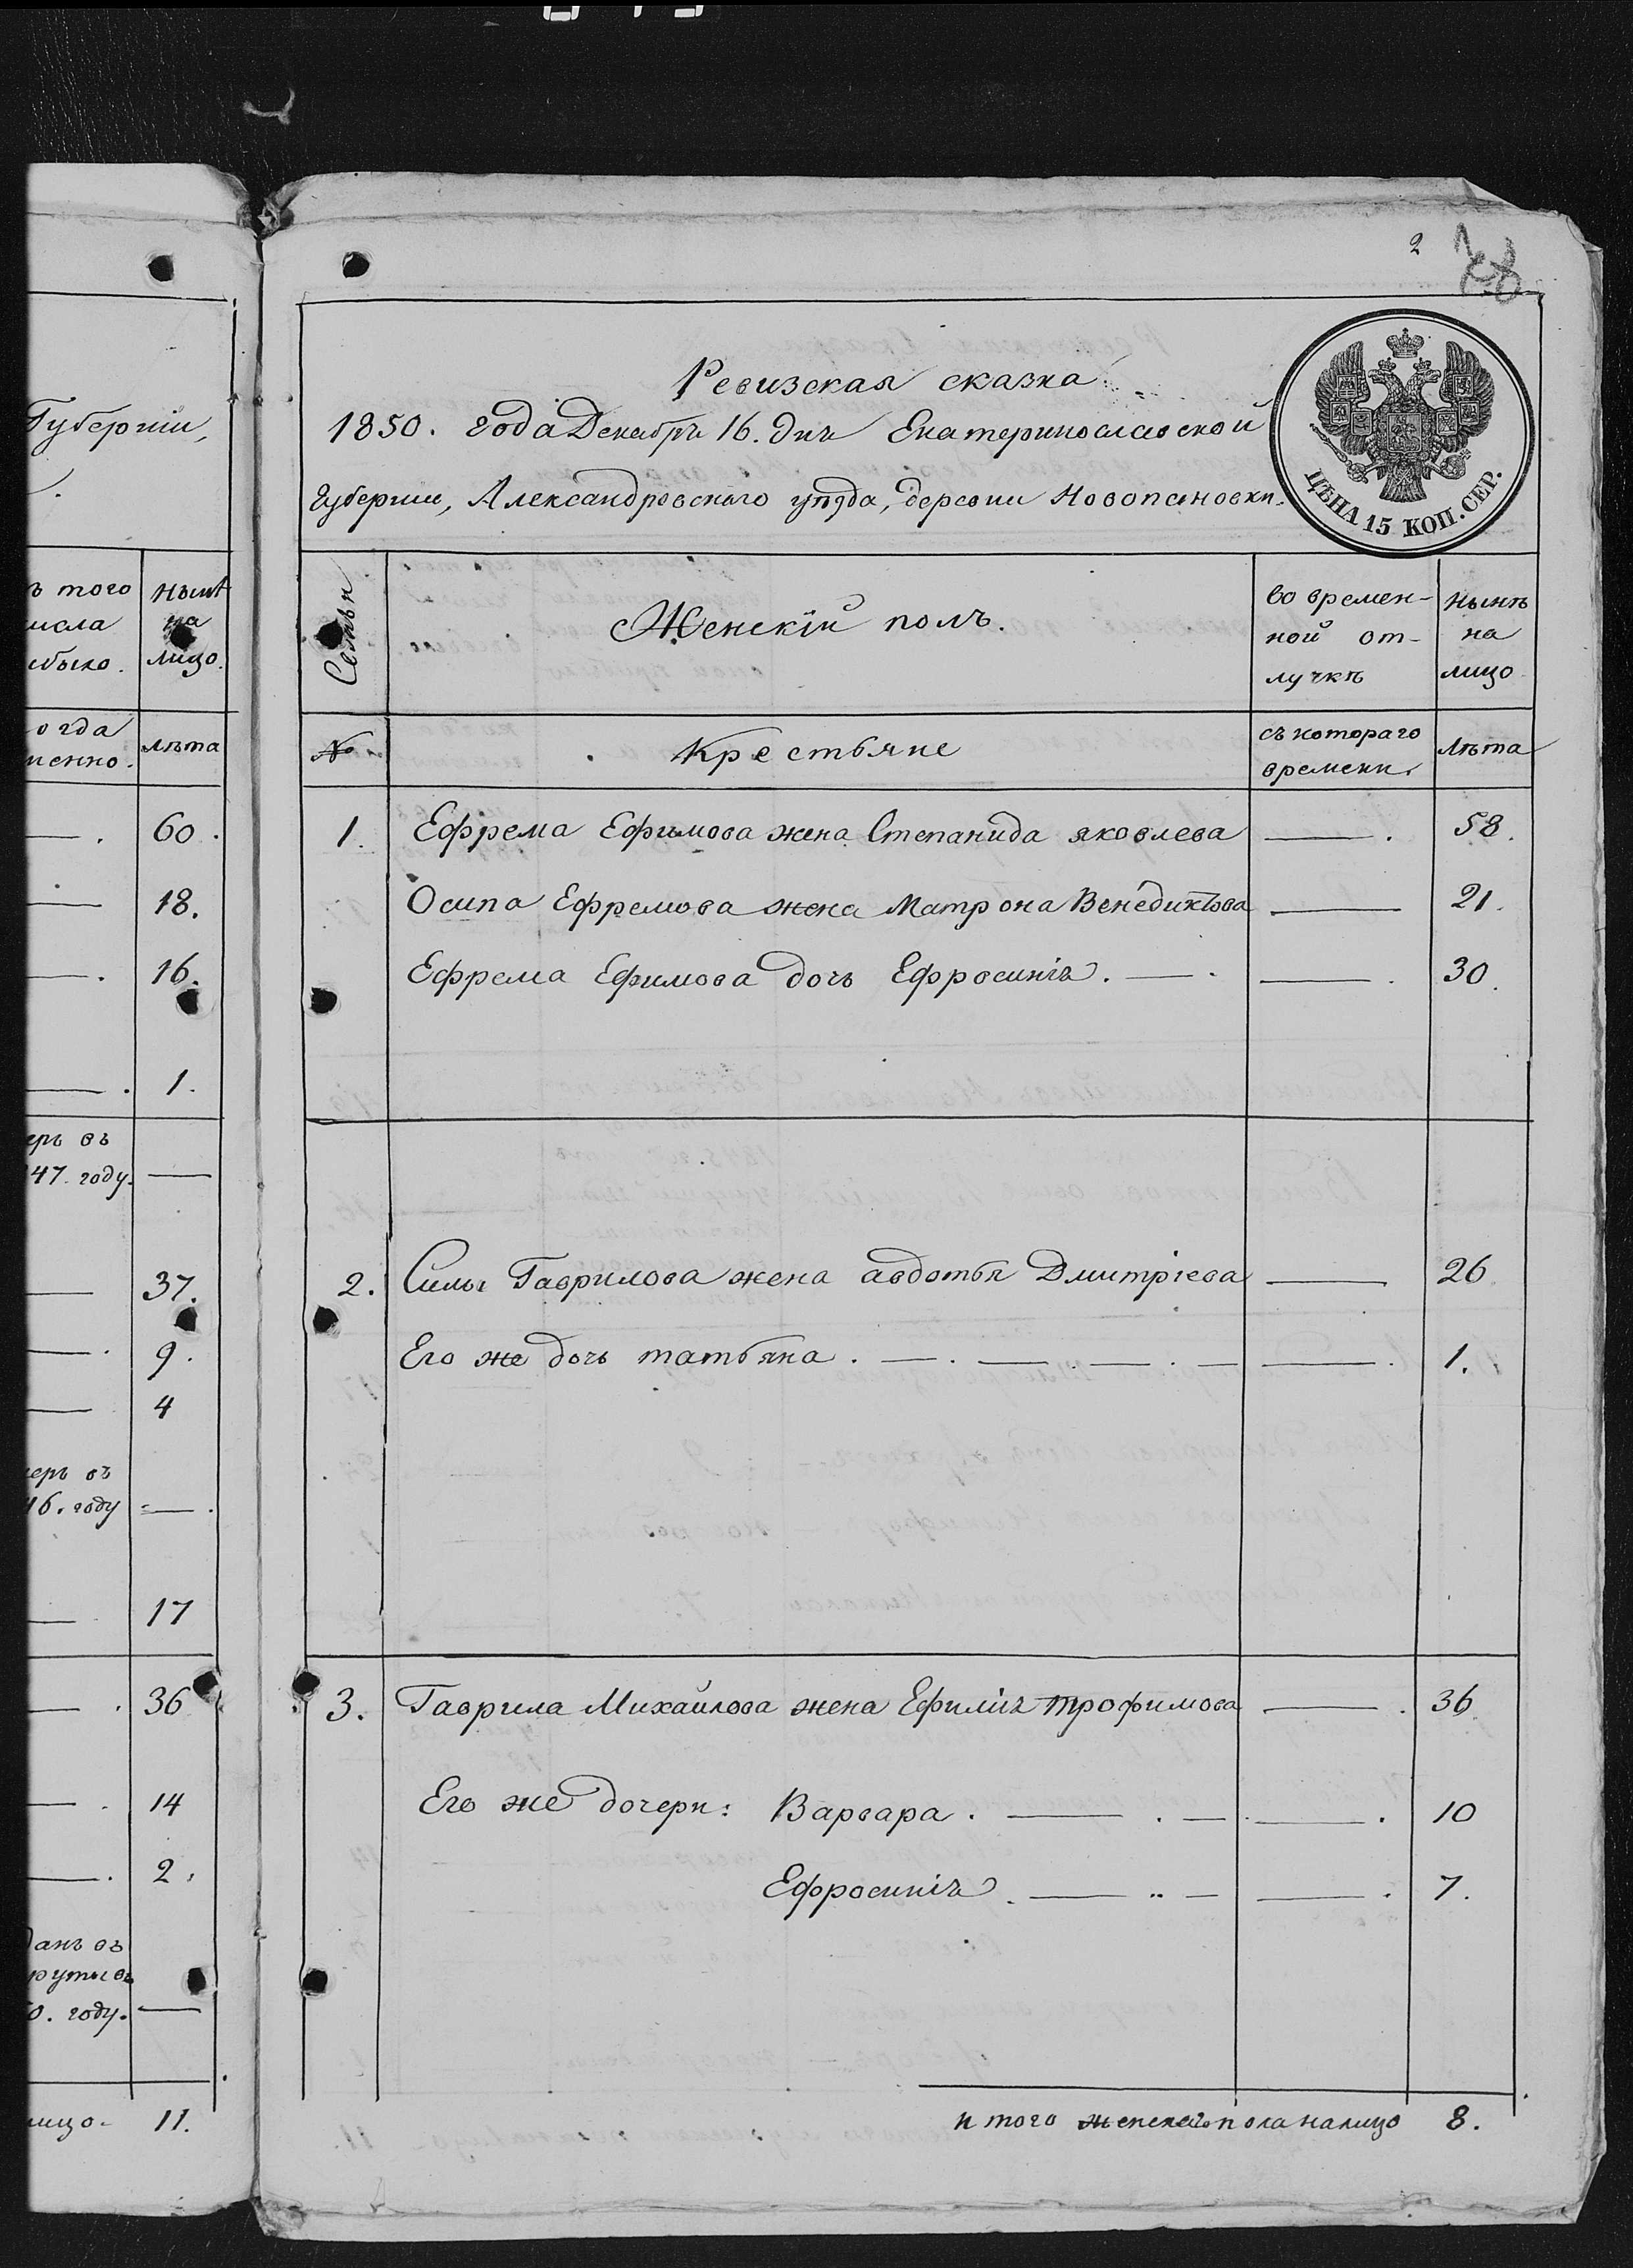 2
Губерніи,
ъ того нынѣ
исла на
ибыло. лицо.
огда лѣта
менно.
60.
18.
16.
1.
еръ въ
47. году.
37.
9.
4
еръ въ
46. году
17
36
14
2.
данъ въ
руты въ
0. году.
лицо. 11.
Ревизская сказка
1850. года Декабря 16. дня Екатеринославской
Губерніи, Александровскаго уѣзда, деревни Новопановки.
ЦѢНА 15 КОП. СЕР.
Семьи Женскій полъ. во времен- нынѣ
ной от- на
лучкѣ лицо
№ Крестьяне съ котораго лѣта
времени.
1. Ефрема Ефимова жена Степанида яковлева 58.
Осипа Ефремова жена Матрона Венедиктова 21.
Ефрема Ефимова дочь Ефросинія. 30.
2. Силы Гаврилова жена авдотья Дмитріева 26
Его же дочь татьяна. 1.
3. Гаврила Михайлова жена Ефимія трофимова 36
Его же дочери: Варвара. 10
Ефросинія. 7.
итого женскаго пола налицо 8.